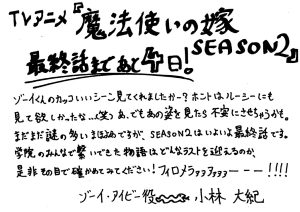 TVアニメ『魔法使いの嫁
SEASON2』
最終話まであと4日!
ゾーイくんのカッコいいシーン見てくれましたかー?ホントはルーシーにも
見て欲しかったな…(笑)あ、でもあの姿を見たら不安にさせちゃうかも。
まだまだ謎の多いまほよめですが、SEASON2はいよいよ最終話です。
学院のみんなで繋いできた物語はどんなラストを迎えるのか、
是非その目で確かめてみてください!フィロメラァァァァァーーー!!!!
ゾーイ・アイビー役 小林 大紀